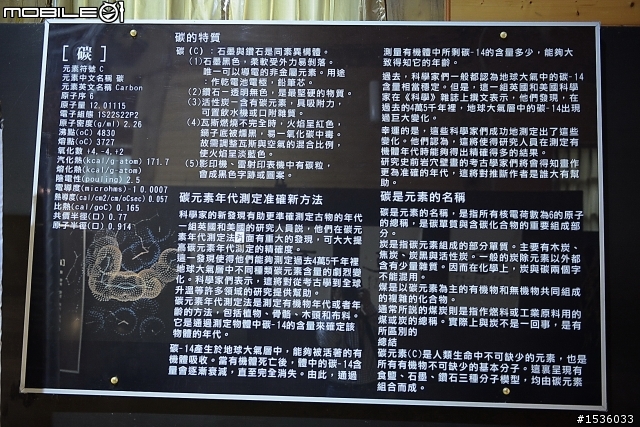 MOBILE01
[ 碳 ]
元素符號 C
元素中文名稱 碳
元素英文名稱 Carbon
原子序 6
原子量 12.01115
電子組態 1S22S22P2
原子密度(g/ml) 2.26
沸點(oC) 4830
熔點(oC) 3727
氧化數 +4,-4,+2
汽化熱(kcal/g-atom) 171.7
熔化熱(kcal/g-atom)
陰電性(pouling) 2.5
電導度(microhms)-1 0.0007
熱導度(cal/cm2/cm/oCsec) 0.057
比熱(cal/goC) 0.165
共價半徑(Ω) 0.77
原子半徑(Ω) 0.914
碳的特質
碳(C)：石墨與鑽石是同素異構體。
(1)石墨黑色，柔軟受外力易剝落。
唯一可以導電的非金屬元素。用途
：作乾電池電極，鉛筆芯。
(2)鑽石一透明無色，是最堅硬的物質。
(3)活性炭一含有碳元素，具吸附力，
可置飲水機或口附雜質。
(4)瓦斯燃燒不完全時，火焰呈紅色，
鍋子底被燻黑，易一氧化碳中毒。
故需調整瓦斯與空氣的混合比例，
使火焰呈淡藍色。
(5)影印機、雷射印表機中有碳粒，
會成黑色字跡或圖案。
碳元素年代測定準確新方法
科學家的新發現有助更準確測定古物的年代
一組英國和美國的研究人員說，他們在碳元
素年代測定法方面有重大的發現，可大大提
高碳元素年代測定的精確度。
這一發現使得他們能夠測定過去4萬5千年裡
地球大氣層中不同種類碳元素含量的劇烈變
化。科學家們表示，這將對從考古學到全球
升溫等許多領域的研究提供幫助。
碳元素年代測定法是測定有機物年代或者年
齡的方法，包括植物、骨骼、木頭和布料。
它是通過測定物體中碳-14的含量來確定該
物體的年代。
碳-14產生於地球大氣層中，能夠被活著的有
機體吸收。當有機體死亡後，體中的碳-14
含量會逐漸衰減，直至完全消失。由此，通過
測量有機體中所剩碳-14的含量多少，能夠大
致得知它的年齡。
過去，科學家們一般都認為地球大氣中的碳-14
含量相當穩定。但是，這一組英國和美國科學
家在《科學》雜誌上撰文表示，他們發現，在
過去的4萬5千年裡，地球大氣層中的碳-14出現
過巨大變化。
幸運的是，這些科學家們成功地測定出了這些
變化。他們認為，這將使得研究人員在測定有
機體年代時能夠得出精確得多的結果。
研究史前岩穴壁畫的考古學家們將會得知畫作
更為準確的年代，這將對推斷作者是誰大有幫
助。
碳是元素的名稱
碳是元素的名稱，是指所有核電荷數為6的原子
的總稱，是碳單質與含碳化合物的重要組成部
分。
炭是指碳元素組成的部分單質。主要有木炭、
焦炭、炭黑與活性炭。一般的炭除元素以外都
含有少量雜質。因而在化學上，炭與碳兩個字
不能混用。
煤是以碳元素為主的有機物和無機物共同組成
的複雜的化合物。
通常所說的煤炭則是指作燃料或工業原料用的
煤或炭的總稱。實際上與炭不是一回事，是有
所區別的
總結
碳元素(C)是人類生命中不可缺少的元素，也是
所有有機物不可缺少的基本分子。這裏呈現有
食鹽、石墨、鑽石三種分子模型，均由碳元素
組合而成。
#1536033